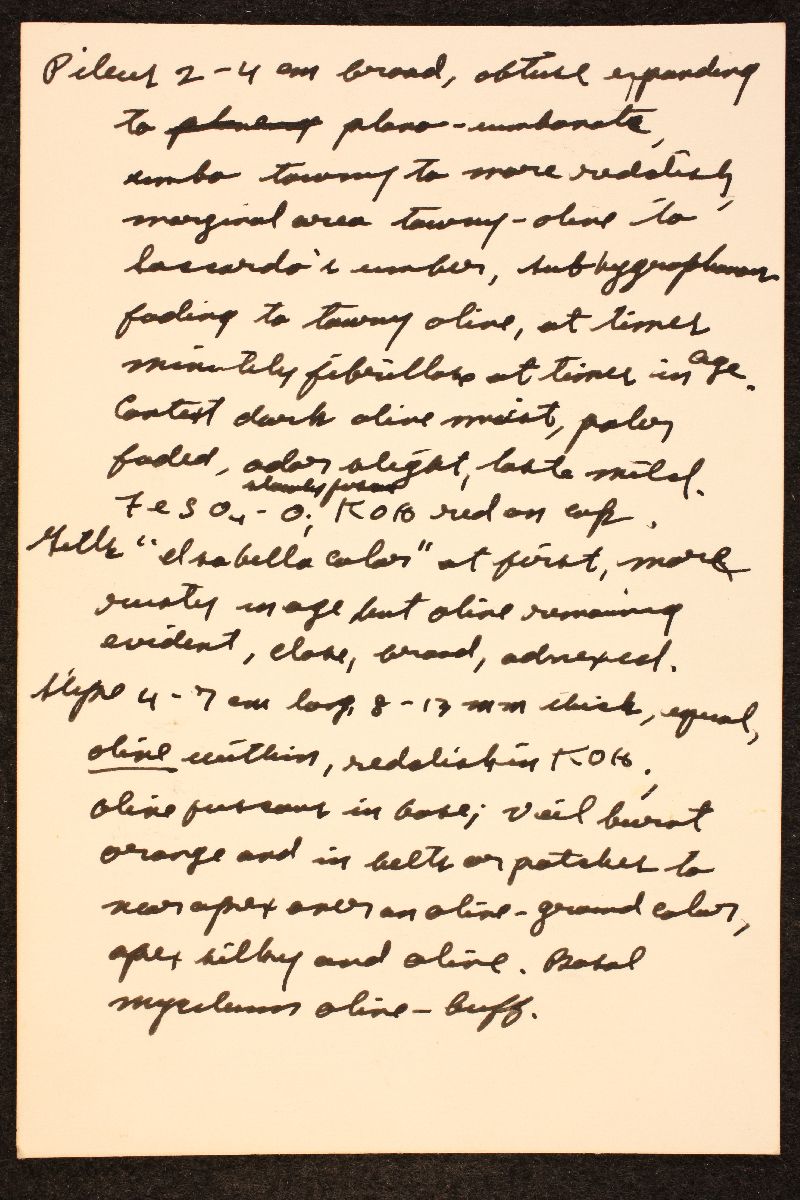 Pileus 2-4 cm broad, obtuse expanding
to plano-umbonate,
umbo tawny to more reddish,
marginal area tawny-olive to
Saccardo's umber, subhygrophanous
fading to tawny olive, at times
minutely fibrillose at times in age.
Context dark olive moist, paler
faded, odor slight, taste mild.
slowly fuscous
FeSO4 - O; KOH red on cap.
Gills "Isabella color" at first, more
rusty in age but olive remaining
evident, close, broad, adnexed.
Stipe 4-7 cm long, 8-12 mm thick, equal,
olive within, reddish in KOH,
olive fuscous in base; veil burnt
orange and in belts or patches to
near apex over an olive-ground color,
apex silky and olive. Basal
mycelium olive-buff.